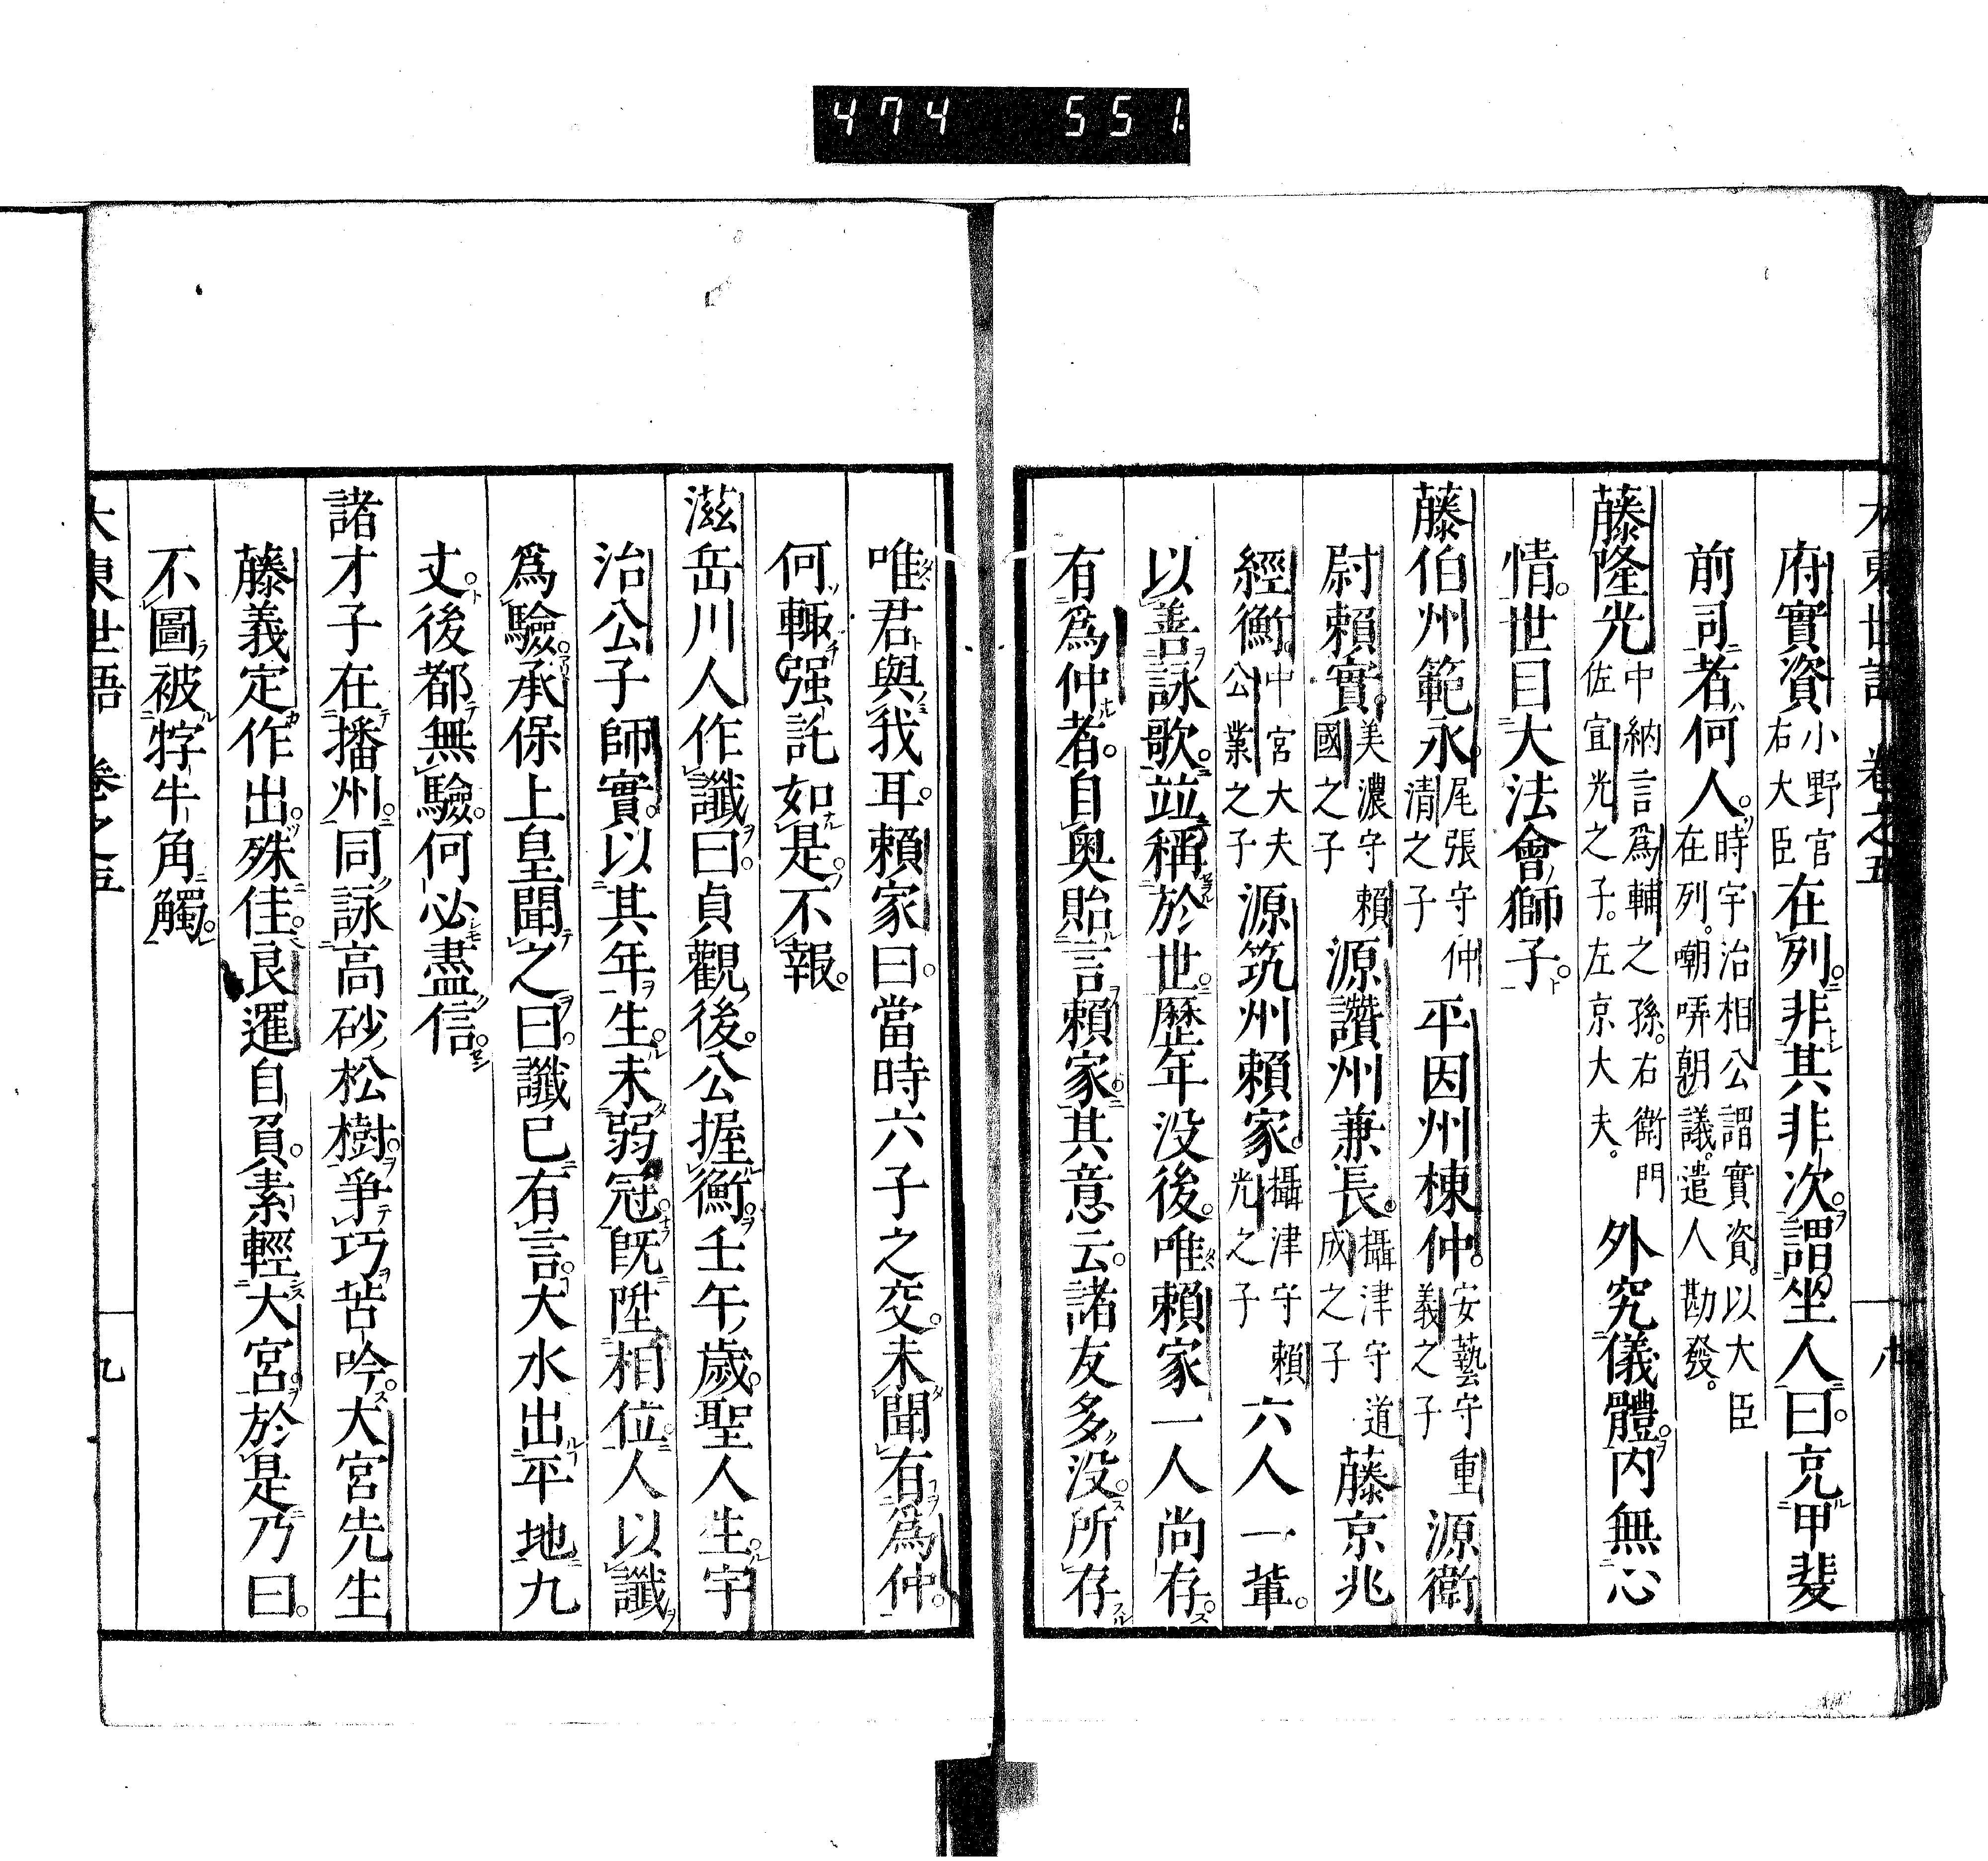 474 551
大東世語 卷之五 八
府實資小野宮右大臣在列非其非次謂坐人曰兗甲斐
前司者何人時宇治相公謂實資以大臣在列嘲哢朝議遣人勘發
藤隆光中納言爲輔之孫右衛門佐宣光之子左京大夫外究儀體内無心
情世目大法會獅子
藤伯州範永尾張守仲清之子平因州棟仲安藝守重義之子源衛
尉賴實美濃守賴國之子源讚州兼長攝津守道成之子藤京兆
經衡中宮大夫公業之子源筑州賴家攝津守賴光之子六人一輩
以善詠歌竝稱於世歷年没後唯賴家一人尚存
有爲仲者自奥貽言賴家其意云諸友多没所存
唯君與我耳賴家曰當時六子之交未聞有爲仲
何輙强託如是不報
滋岳川人作讖曰貞觀後公握衡壬午歲聖人生宇
治公子師實以其年生未弱冠既陞相位人以讖
爲驗承保上皇聞之曰讖已有言大水出平地九
丈後都無驗何必盡信
諸才子在播州同詠高砂松樹爭巧苦吟大宮先生
藤義定作出殊佳良暹自負素輕大宮於是乃曰
不圖被牸牛角觸
大東世語 卷之五 九